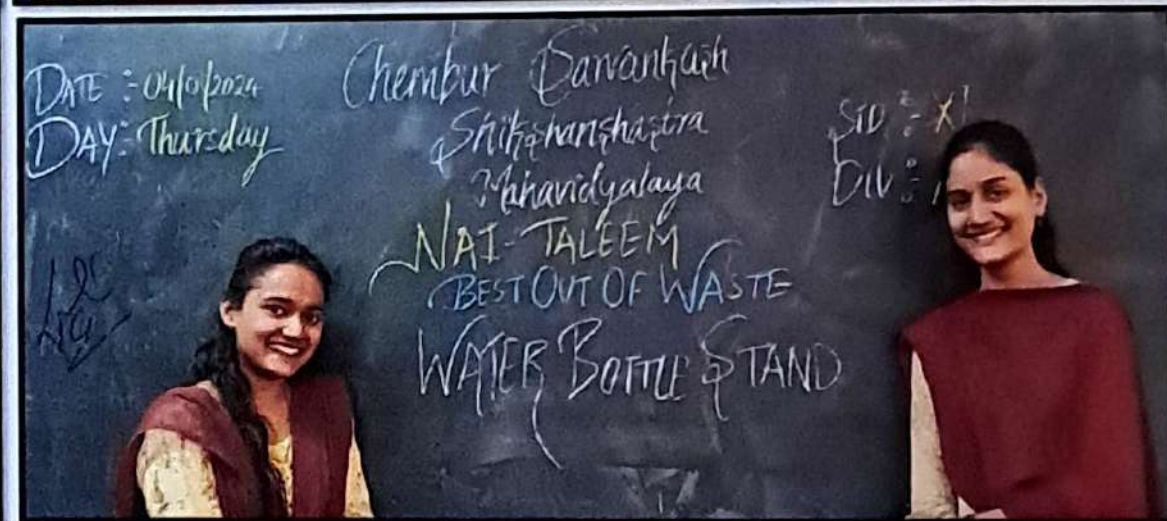 DATE :- 04/01/2024
DAY:- Thursday
Chembur Sarvankash
Shikshanshastra
Mahavidyalaya
STD :- XI
DIV :-
NAI-TALEEM
BEST OUT OF WASTE
WATER BOTTLE STAND